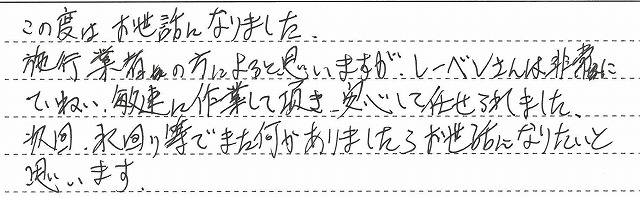 この度はお世話になりました、
施行業者の方によると思いますが、レーベンさんは非常に
ていねい、敏速に作業して頂き、安心して任せられました、
次回、水回り等でまた何かありましたらお世話になりたいと
思います、